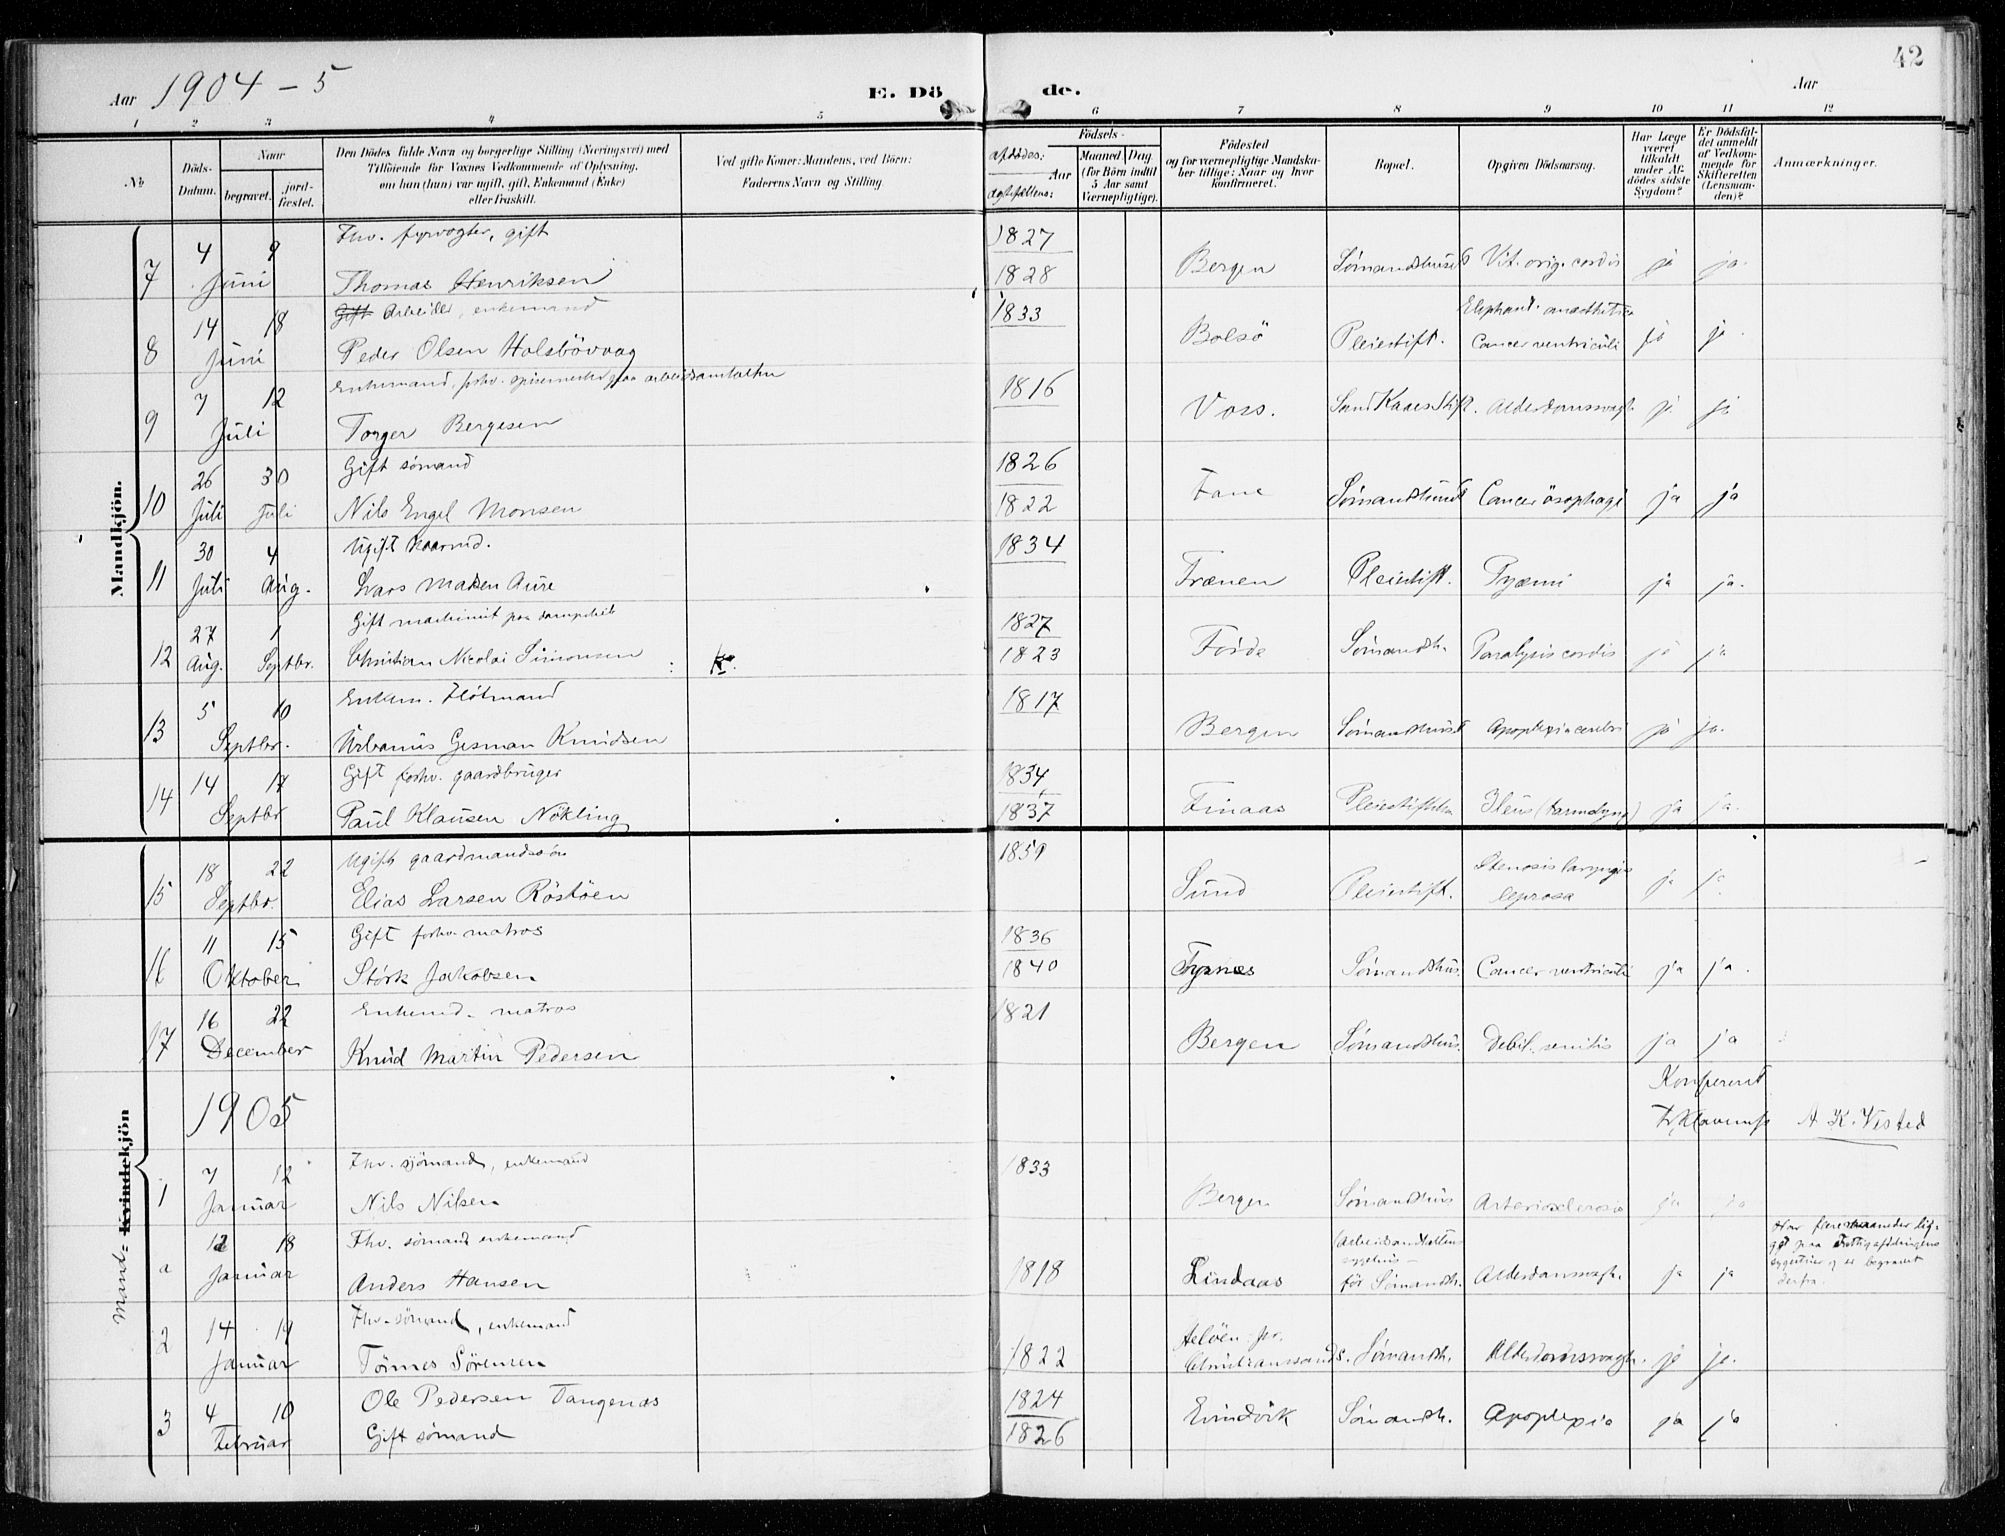 42
Aar 1904-5 E. Dö de. Aar
1 2 3 4 5 6 7 8 9 10 11 12
No
Döds-Datum.
Naar
begravet.
jord-fæstet.
Den Dödes fulde Navn og borgerlige Stilling (Næringsvei) med
Tilföiende for Voxnes Vedkommende af Oplysning,
om han (hun) var ugift, gift, Enkemand (Enke)
eller fraskilt.
Ved gifte Koner: Mandens, ved Börn:
Faderens Navn og Stilling.
Födsels-
afdödes:
Aar
Maaned Dag
(for Börn indtil
5 Aar samt
Værnepligtige).
Födested
og for værnepligtige Mandska-
ber tillige: Naar og hvor
konfirmeret.
Bopæl.
Opgiven Dödsaarsag.
Har Læge
været
tilkaldt
under Af-
dödes sidste
Sygdom?
Er Dödsfal-
det anmeldt
af Vedkom-
mende for
Skifteretten
(Lensman-
den)?
Anmærkninger.
Mandkjön.
Fhv. fyrvogter, gift 1827
7 4 9 Juni Thomas Henriksen 1828 Bergen Sömandshuset Vit. orig. cordis ja ja.
Gift Arbeider, enkemand 1833 Elephant. anæsthetica
8 14 18 Juni Peder Olsen Holsbövvag Bolsö Pleiestift. Cancer ventriculi ja ja
Enkemand, forhv. spisemester paa arbeidsanstalten 1816
9 7 12 Juli Torger Bergesen Voss. Alderdomssvagh. ja ja
Gift sömand 1826
10 26 30 Juli Juli Nils Engel Monsen 1822 Fane Sömandshuset Cancer ösophagi ja ja
Ugift 1834
11 30 4 Juli Aug. Lars Madsen Aure Frænen Pleiestift. Pyæmi ja ja.
Gift machinist paa dampskib 1827
12 27 1 Aug. Septbr. Christian Nicolai Simonsen 1823 Förde Sömandsh. Paralysis cordis ja ja
Enkem. Flötmand 1817
13 5 10 Septbr. Urbanus Gesman Knudsen Bergen Sömandshuset Apoplexia cerebri ja ja.
Gift forhv. gaardbruger 1834
14 14 17 Septbr Paul Klausen Nökling 1837 Finaas Pleiestiftelsen Ileus (tarmslyng) ja ja.
Ugift gaardmandssön 1851 Stenosis laryngis
15 18 22 Septbr. Elias Larsen Röstöen Sund Pleiestift. leprosa ja ja
Gift forhv matros 1836
16 11 15 Oktober Störk Jakobsen 1840 Tysnes Sömandshus. Cancer ventriculi ja ja.
Enkemd. matros 1821
17 16 22 December Knud Martin Pedersen Bergen Sömandshus. Debil. senilis ja ja
Konfereret
1905 A. K. Visted
Mand- Kvindekjön
Fhv. sjömand, enkemand 1833
1 7 12 Januar Nils Nilsen Bergen Sömandshus Arteriosclerosis ja ja
Fhv. sömand enkemand
a 12 18 Januar Anders Hansen 1818 Lindaas för Sömandsh. Alderdomssvagh. ja ja derfra.
Fhv. sömand, enkemand
2 14 19 Januar Tönnes Sörensen 1822 Christianssand S. Sömandsh. Alderdomssvagh. ja ja.
Ole Pedersen Tangenæs 1824
3 4 10 Februar Gift sömand 1826 Evindvik Sömandsh. Apoplexia ja ja